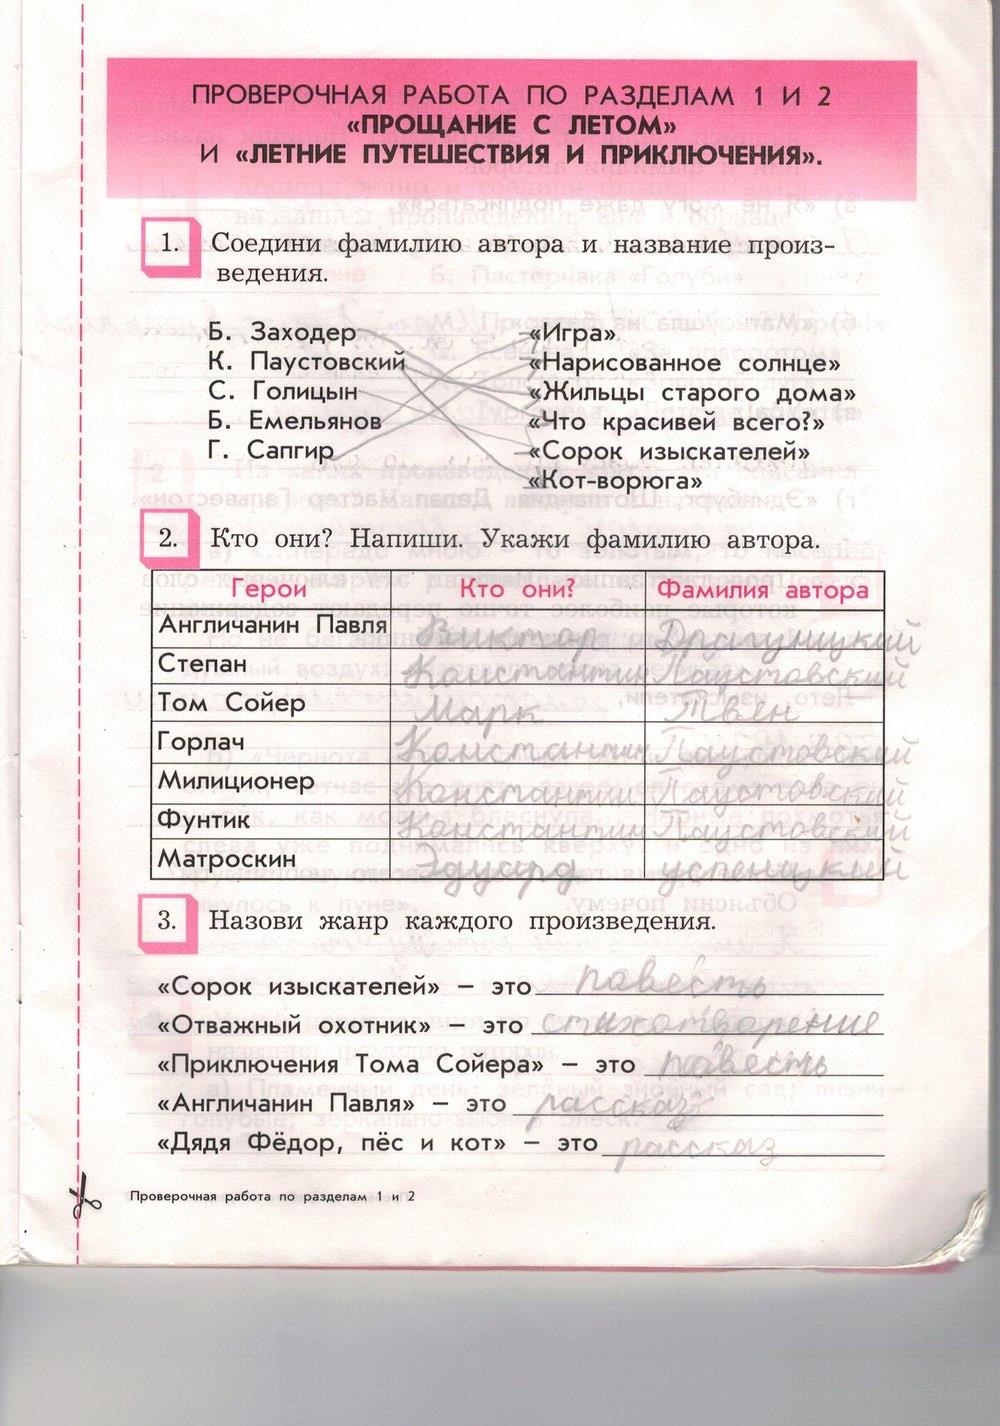 ПРОВЕРОЧНАЯ РАБОТА ПО РАЗДЕЛАМ 1 И 2
«ПРОЩАНИЕ С ЛЕТОМ»
И «ЛЕТНИЕ ПУТЕШЕСТВИЯ И ПРИКЛЮЧЕНИЯ».
1. Соедини фамилию автора и название произ-
ведения.
Б. Заходер «Игра»
К. Паустовский «Нарисованное солнце»
С. Голицын «Жильцы старого дома»
Б. Емельянов «Что красивей всего?»
Г. Сапгир «Сорок изыскателей»
«Кот-ворюга»
2. Кто они? Напиши. Укажи фамилию автора.
Герои Кто они? Фамилия автора
Англичанин Павля Виктор Драгуницкий
Степан Константин Паустовский
Том Сойер Марк Твен
Горлач Константин Паустовский
Милиционер Константин Паустовский
Фунтик Константин Паустовский
Матроскин Эдуард успеницкий
3. Назови жанр каждого произведения.
«Сорок изыскателей» – это повесть
«Отважный охотник» – это стихотворение
«Приключения Тома Сойера» – это повесть
«Англичанин Павля» – это рассказ
«Дядя Фёдор, пёс и кот» – это рассказ
Проверочная работа по разделам 1 и 2